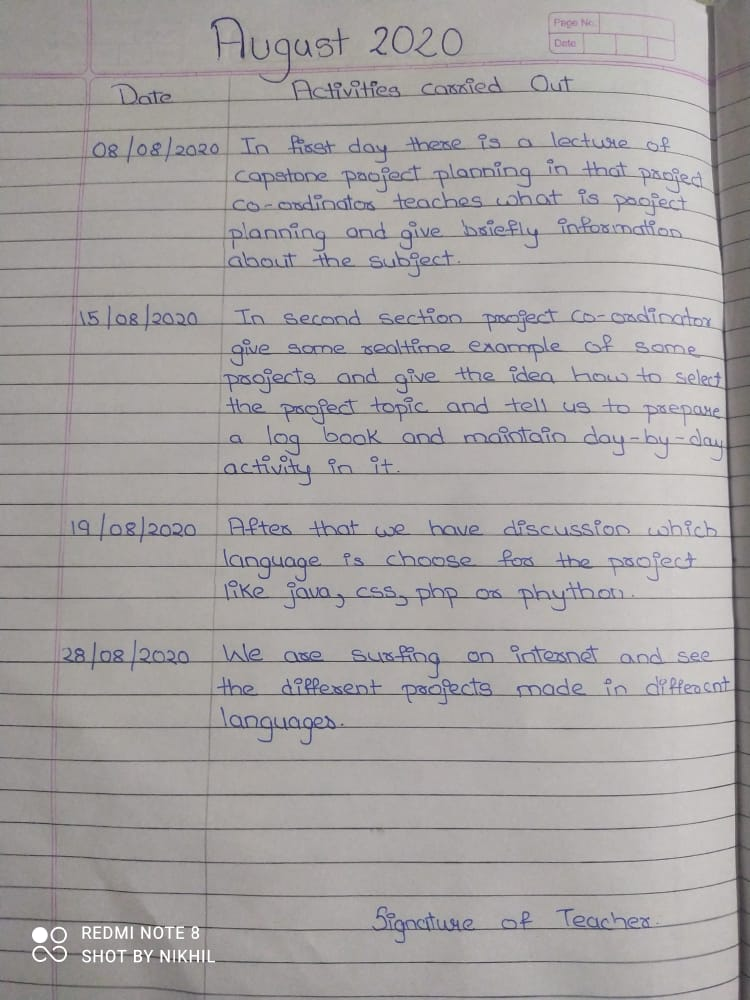 August 2020
Page No.
Date
Date Activities carried Out
08/08/2020 In first day there is a lecture of
capstone project planning in that project
co-ordinator teaches what is project
planning and give briefly information
about the subject.
15/08/2020 In second section project co-ordinator
give some realtime example of some
projects and give the idea how to select
the project topic and tell us to prepare
a log book and maintain day-by-day
activity in it.
19/08/2020 After that we have discussion which
language is choose for the project
like java, css, php or phython.
28/08/2020 We are surfing on internet and see
the different projects made in different
languages.
Signature of Teacher.
REDMI NOTE 8
SHOT BY NIKHIL